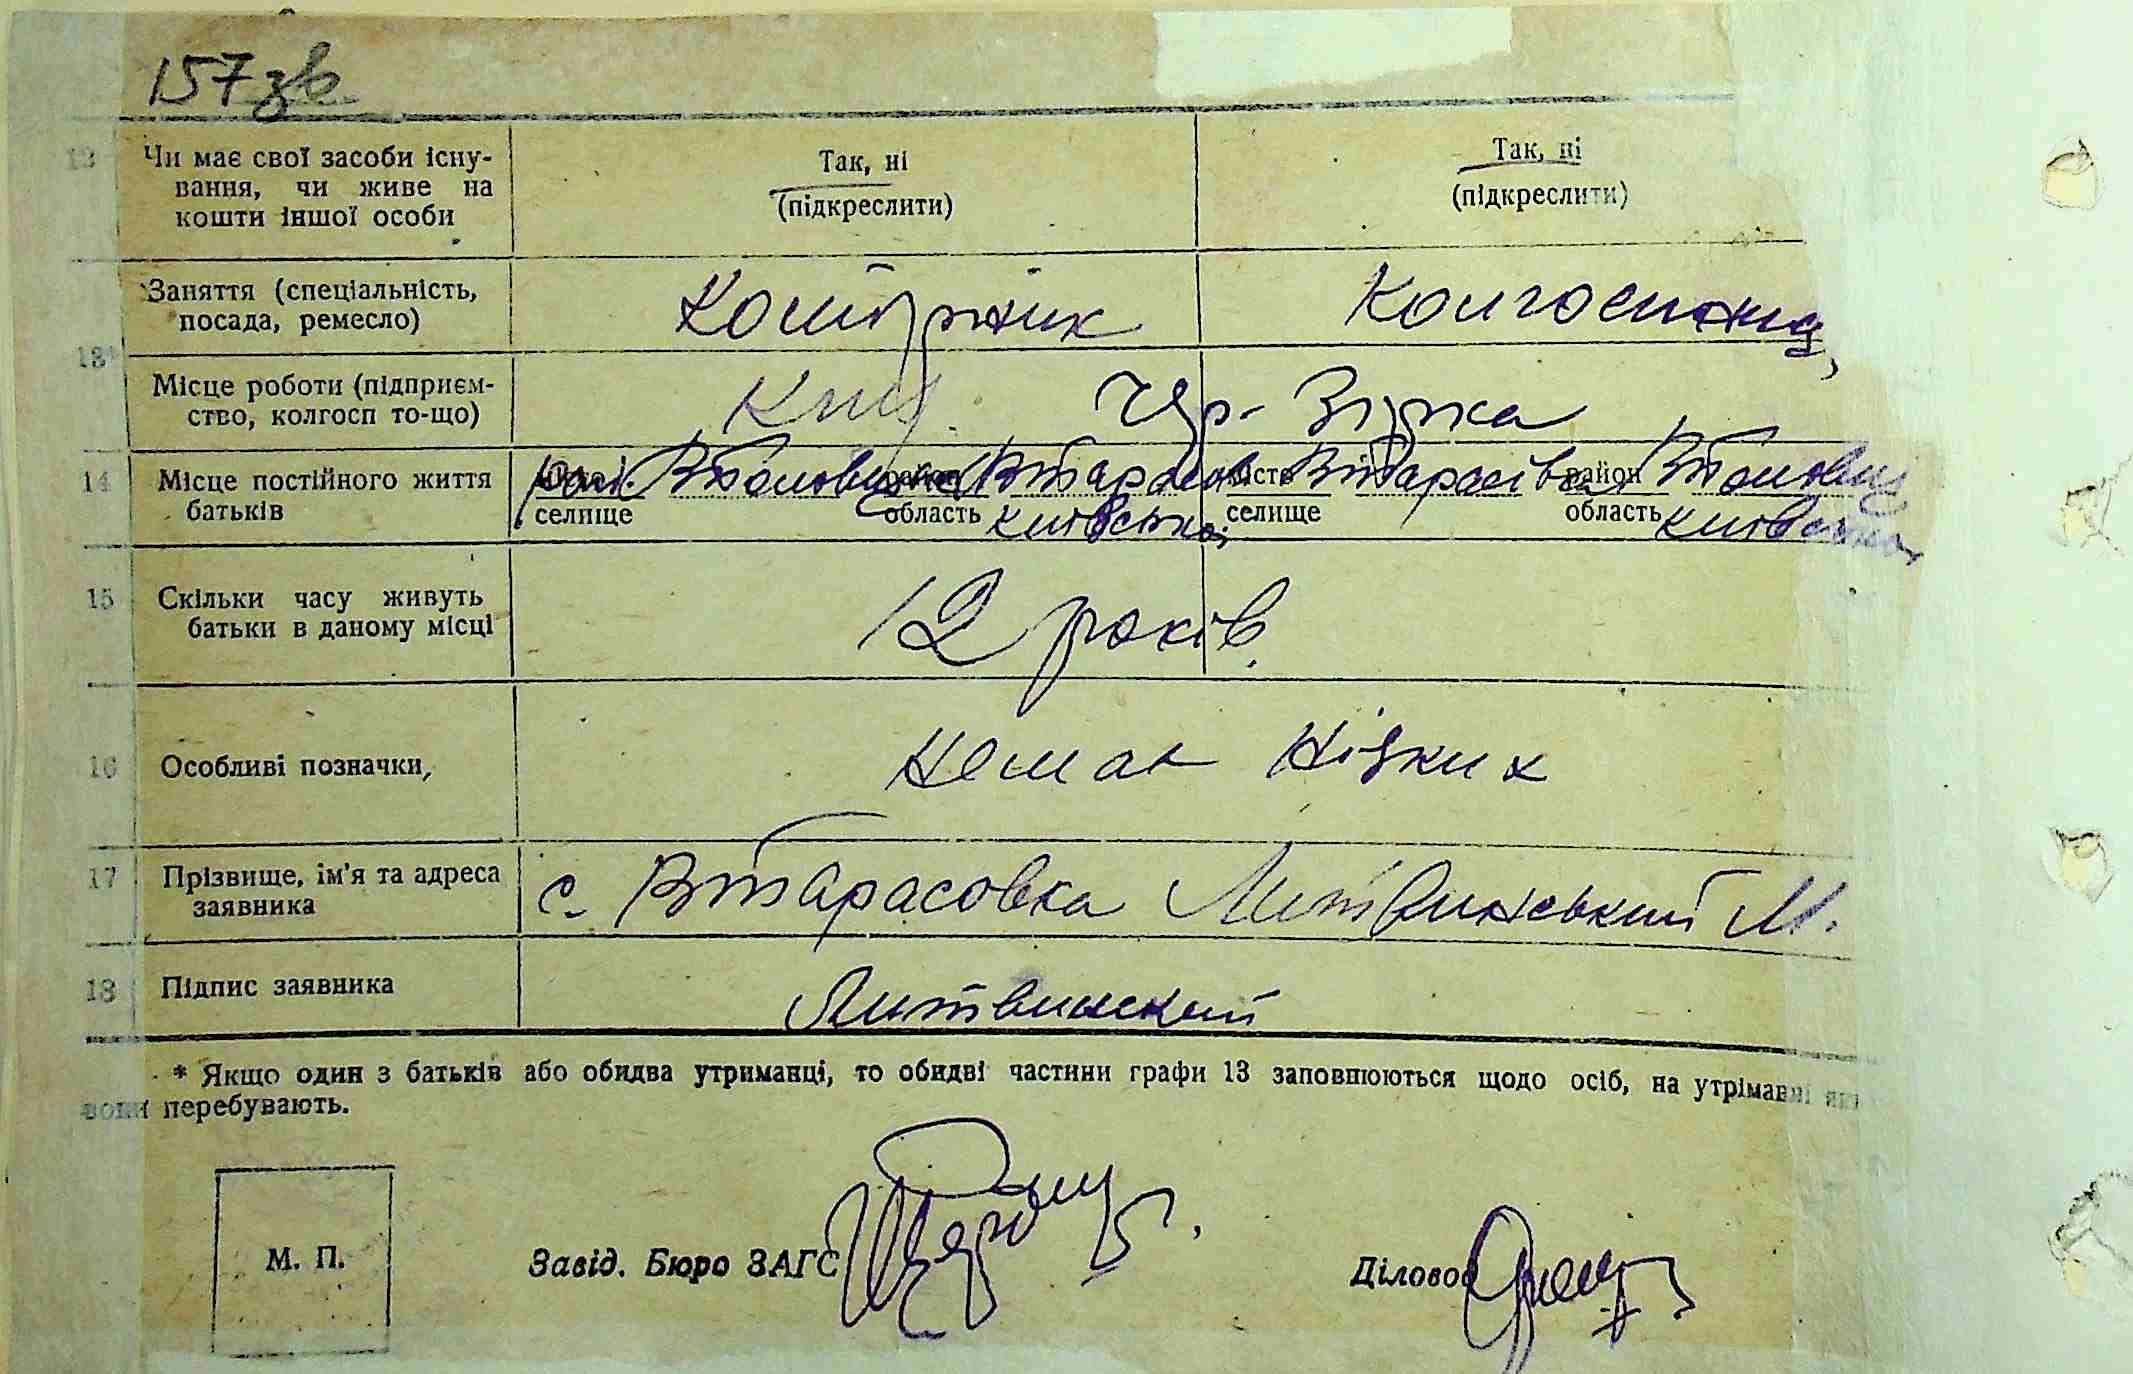 157 зв
12 Чи має свої засоби існу-
вання, чи живе на
кошти іншої особи
Так, ні
(підкреслити)
Так, ні
(підкреслити)
13*
Заняття (спеціальність,
посада, ремесло)
Колгоспниця
Місце роботи (підприєм-
ство, колгосп то-що)
Чер. Зірка
14 Місце постійного життя
батьків
селище
район
область Київська
місто
селище
район
область Київська
15 Скільки часу живуть
батьки в даному місці
12 років.
16 Особливі позначки,
Немає ніяких
17 Прізвище, ім'я та адреса
заявника
с. Втарасовка Литвинський М.
18 Підпис заявника
Литвинский
* Якщо один з батьків або обидва утриманці, то обидві частини графи 13 заповнюються щодо осіб, на утріманні яки
вони перебувають.
М. П.
Завід. Бюро ЗАГС
Діловод